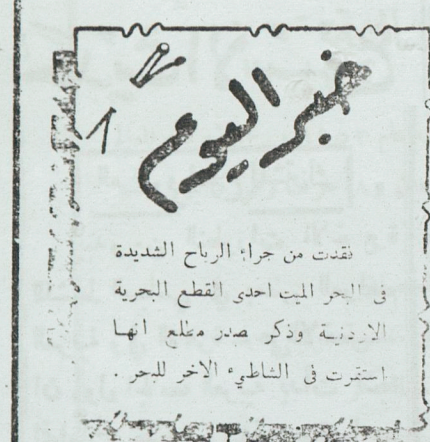 خبر اليوم
فقدت من جراء الرياح الشديدة
فى البحر الميت احدى القطع البحرية
الاردنية وذكر صدر مطلع انها
استقرت فى الشاطيء الاخر للبحر .